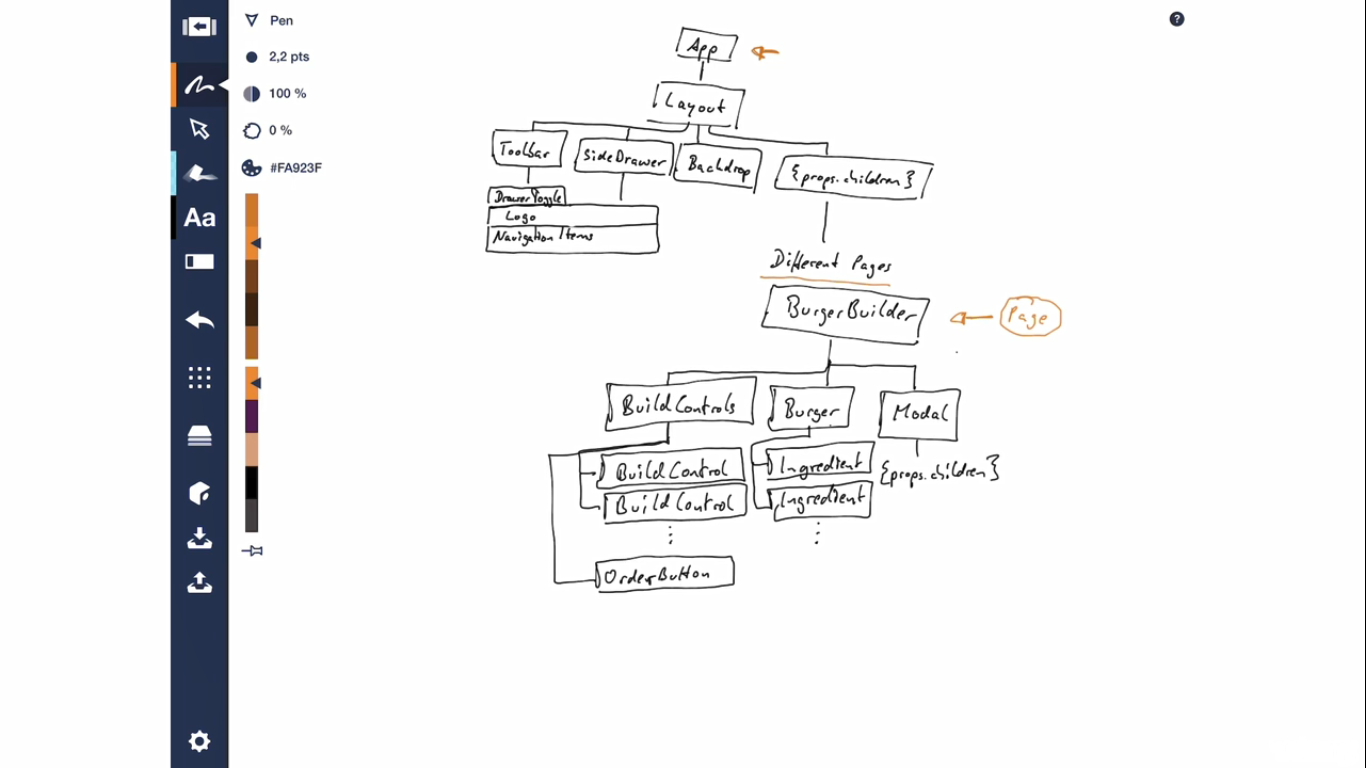 Pen
2,2 pts
100 %
0 %
#FA923F
Aa
?
App
Layout
Toolbar
SideDrawer
Backdrop
{props.children}
DrawerToggle
Logo
Navigation Items
Different Pages
BurgerBuilder
Page
BuildControls
Burger
Modal
BuildControl
Ingredient
{props.children}
BuildControl
Ingredient
OrderButton